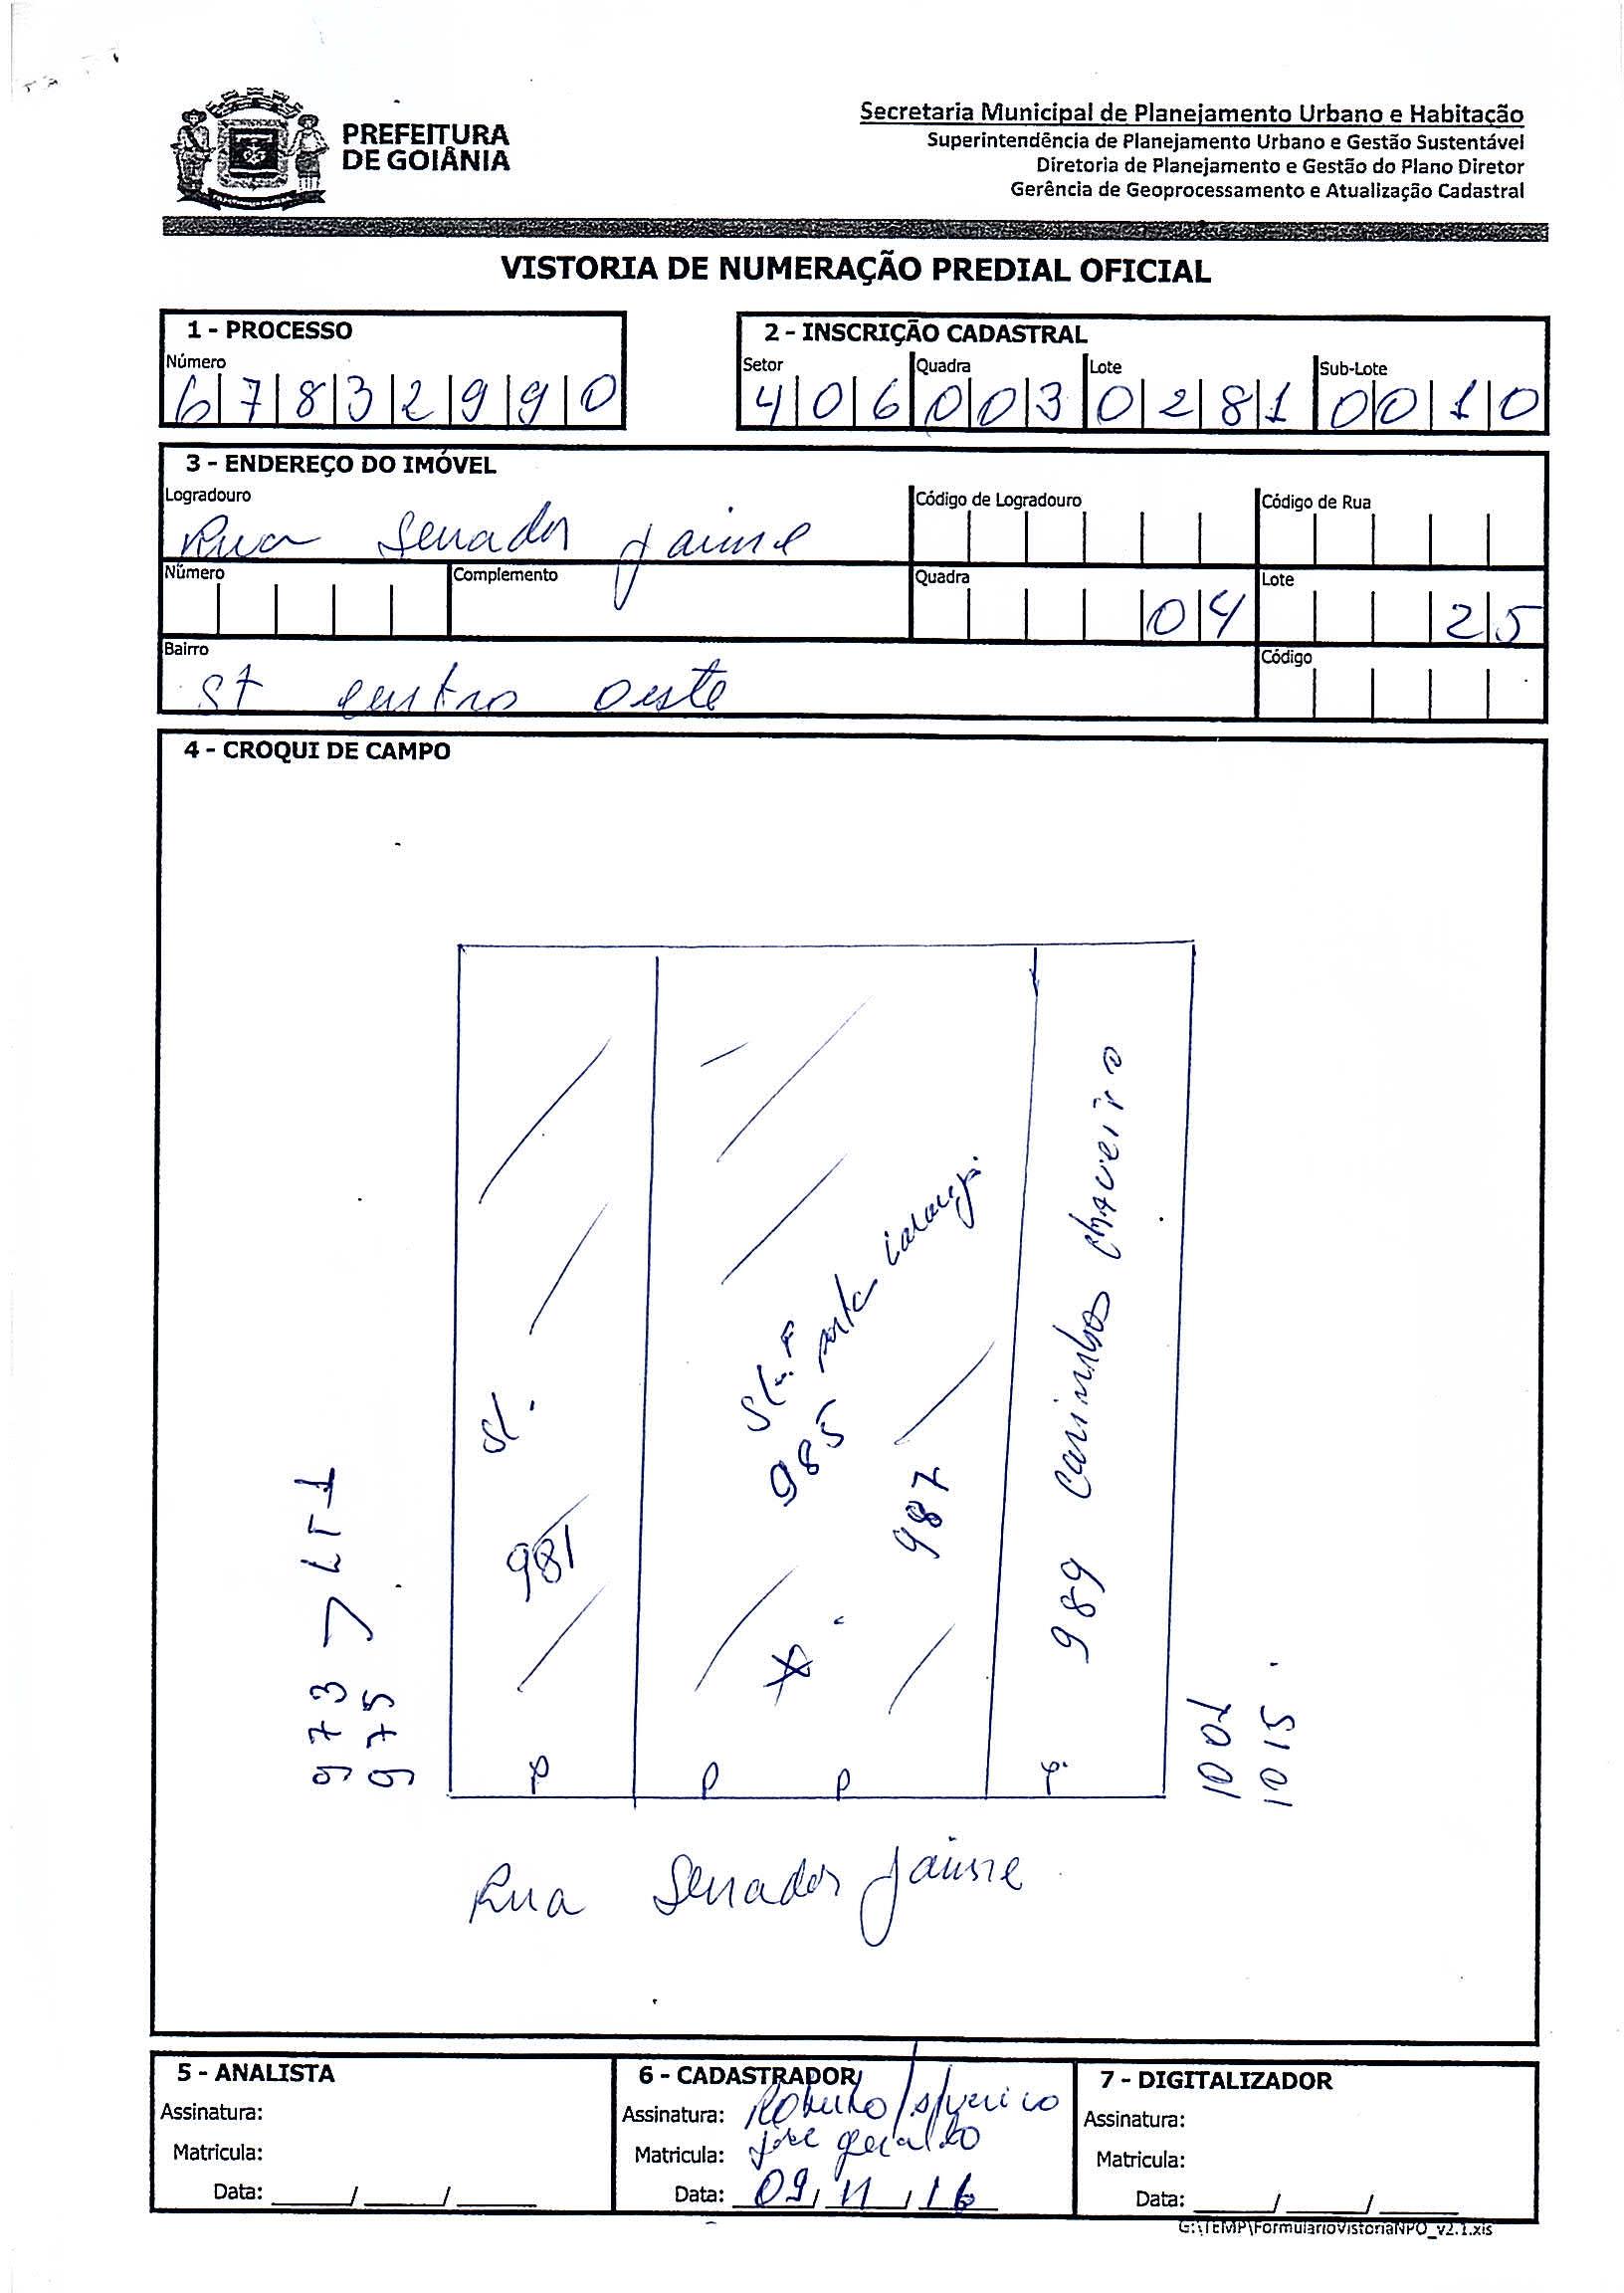 PREFEITURA
DE GOIÂNIA
Secretaria Municipal de Planejamento Urbano e Habitação
Superintendência de Planejamento Urbano e Gestão Sustentável
Diretoria de Planejamento e Gestão do Plano Diretor
Gerência de Geoprocessamento e Atualização Cadastral
VISTORIA DE NUMERAÇÃO PREDIAL OFICIAL
1 - PROCESSO
Número
67832990
2 - INSCRIÇÃO CADASTRAL
Setor Quadra Lote Sub-Lote
406 003 0281 0010
3 - ENDEREÇO DO IMÓVEL
Logradouro Código de Logradouro Código de Rua
Rua Senador Jaime
Número Complemento Quadra Lote
04 25
Bairro Código
St centro oeste
4 - CROQUI DE CAMPO
973
975
LT 1
981
985
987
989 carimbos chaveiro
1001
1015
P P P P
Rua Senador Jaime
5 - ANALISTA
Assinatura:
Matricula:
Data: ____/____/____
6 - CADASTRADOR
Assinatura: Roberto
Matricula: José Geraldo
Data: 09/11/16
7 - DIGITALIZADOR
Assinatura:
Matricula:
Data: ____/____/____
G:\TEMP\FormularioVistoriaNPO_v2.1.xls